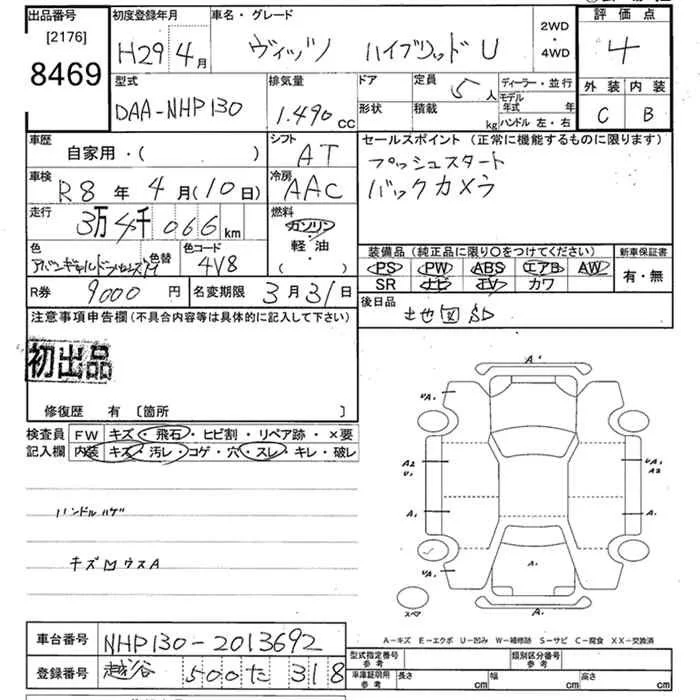 出品番号 初度登録年月 車名・グレード 2WD ・ 4WD 評価点
[2176]
8469 H29年 4月 ヴィッツ ハイブリッドU 4
型式 排気量 ドア 定員 ディーラー・並行 外装 内装
DAA-NHP130 1.490cc 5人 モデル年式 年 C B
形状 積載 kg ハンドル 左・右
車歴 シフト セールスポイント (正常に機能するものに限ります)
自家用・( ) AT プッシュスタート
車検 冷房 バックカメラ
R8年 4月(10日) AAC
走行 燃料
3万4千066km ガソリン 軽油 ( )
色 色替 色コード 装備品 (純正品に限り○をつけてください) 新車保証書
4V8 PS PW ABS エアB AW 有・無
SR ナビ TV カワ
R券 9000円 名変期限 3月31日 後日品
地図SD
注意事項申告欄(不具合内容等は具体的に記入して下さい)
初出品
修復歴 有 〔箇所 〕
検査員 FW キズ・飛石・ヒビ割・リペア跡・×要
記入欄 内装 キズ・汚レ・コゲ・穴・スレ・キレ・破レ
ハンドルハゲ
A'
UA1 UA1
A2 U1
A3
A1 A1
A1
UA1 UA1
スペア A1
A-キズ E-エクボ U-凹み W-補修跡 S-サビ C-腐食 XX-交換済
車台番号 NHP130-2013692
型式指定番号 参考 類別区分番号 参考
登録番号 越谷 500 た 318
車庫証明用 参考 長さ cm 幅 cm 高さ cm